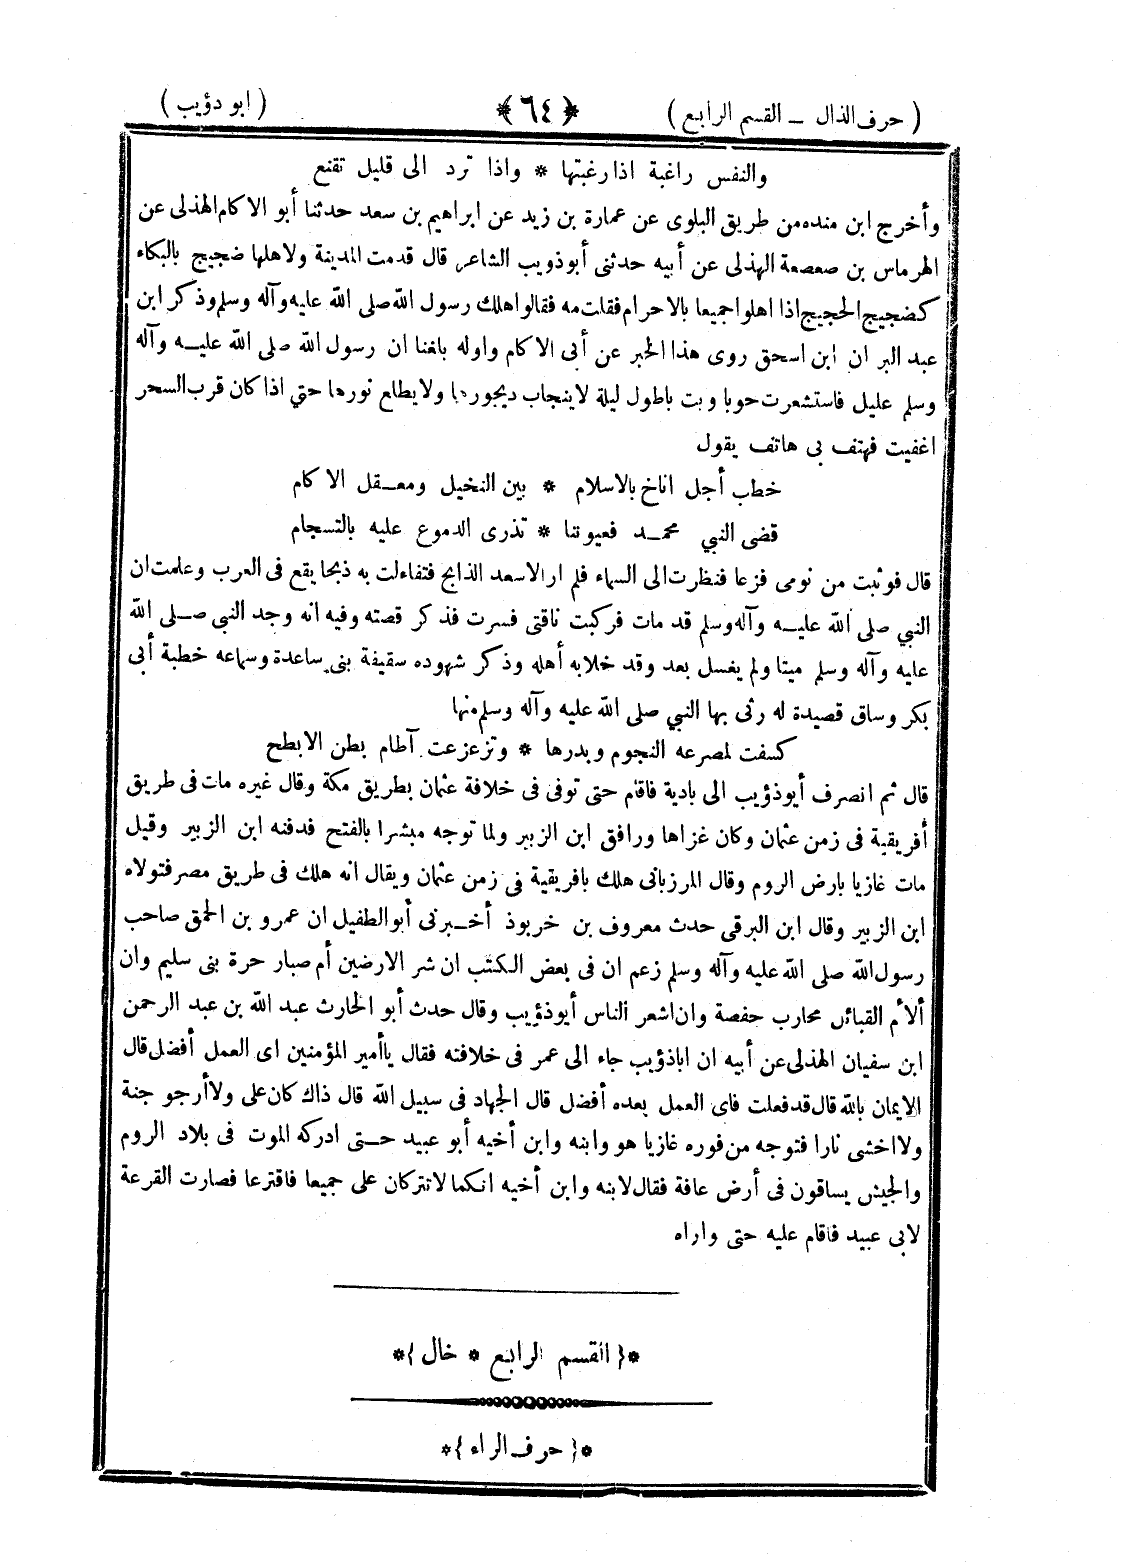 ( حرف الذال ــ القسم الرابع )
﴿ ٦٤ ﴾
( ابو دؤيب )
والنفس راغبة اذا رغبتها * واذا ترد الى قليل تقنع
وأخرج ابن منده من طريق البلوى عن عمارة بن زيد عن ابراهيم بن سعد حدثنا أبو الاكام الهذلى عن
الهرماس بن صعصعة الهذلى عن أبيه حدثنى أبو ذويب الشاعر قال قدمت المدينة ولاهلها ضجيج بالبكاء
كضجيج الحجيج اذا اهلوا جميعا بالاحرام فقلت مه فقالوا هلك رسول الله صلى الله عليه وآله وسلم وذكر ابن
عبد البر ان ابن اسحق روى هذا الخبر عن أبى الاكام واوله بلغنا ان رسول الله صلى الله عليه وآله
وسلم عليل فاستشعرت حوبا وبت باطول ليلة لاينجاب ديجورها ولايطلع نورها حتي اذا كان قرب السحر
اغفيت فهتف بى هاتف يقول
خطب أجل اناخ بالاسلام * بين النخيل ومعقل الاكام
قضى النبي محمد فعيوننا * تذرى الدموع عليه بالتسجام
قال فوثبت من نومى فزعا فنظرت الى السماء فلم ار الاسعد الذابح فتفاءلت به ذبحا يقع فى العرب وعلمت ان
النبي صلى الله عليه وآله وسلم قد مات فركبت ناقتى فسرت فذكر قصته وفيه انه وجد النبي صلى الله
عليه وآله وسلم ميتا ولم يغسل بعد وقد خلابه أهله وذكر شهوده سقيفة بنى ساعدة وسماعه خطبة أبى
بكر وساق قصيدة له رثى بها النبي صلى الله عليه وآله وسلم منها
كسفت لمصرعه النجوم وبدرها * وتزعزعت آطام بطن الابطح
قال ثم انصرف أبوذؤيب الى بادية فاقام حتى توفى فى خلافة عثمان بطريق مكة وقال غيره مات فى طريق
أفريقية فى زمن عثمان وكان غزاها ورافق ابن الزبير ولما توجه مبشرا بالفتح فدفنه ابن الزبير وقيل
مات غازيا بارض الروم وقال المرزبانى هلك بافريقية فى زمن عثمان ويقال انه هلك فى طريق مصر فتولاه
ابن الزبير وقال ابن البرقي حدث معروف بن خربوذ أخبرنى أبو الطفيل ان عمرو بن الحمق صاحب
رسول الله صلى الله عليه وآله وسلم زعم ان فى بعض الكتب ان شر الارضين أم صبار حرة بنى سليم وان
ألأم القبائل محارب حفصة وان اشعر الناس أبوذؤيب وقال حدث أبو الحارث عبد الله بن عبد الرحمن
ابن سفيان الهذلى عن أبيه ان اباذؤيب جاء الى عمر فى خلافته فقال ياأمير المؤمنين اى العمل أفضل قال
الايمان بالله قال قد فعلت فاى العمل بعده أفضل قال الجهاد فى سبيل الله قال ذاك كان على ولاأرجو جنة
ولااخشى نارا فتوجه من فوره غازيا هو وابنه وابن أخيه أبو عبيد حتى ادركه الموت فى بلاد الروم
والجيش يساقون فى أرض عافة فقال لابنه وابن أخيه انكما لاتتركان على جميعا فاقترعا فصارت القرعة
لابى عبيد فاقام عليه حتى واراه
*﴿ القسم الرابع * خال ﴾*
*﴿ حرف الراء ﴾*